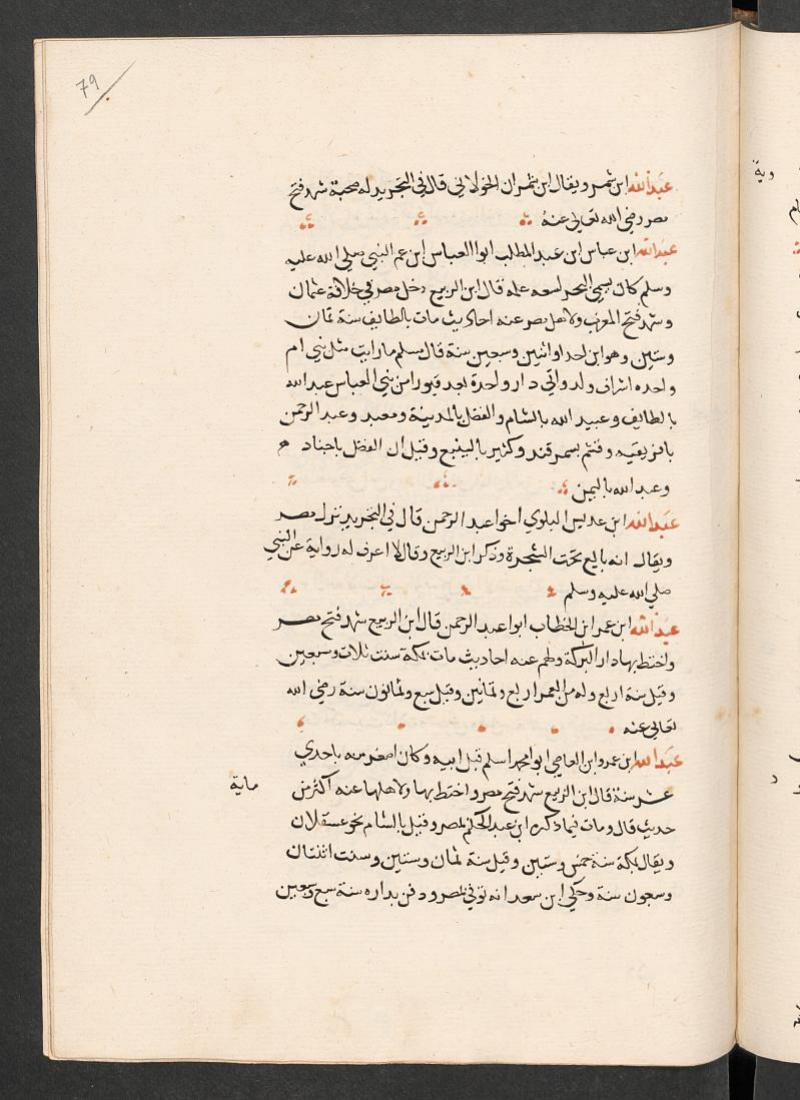 79
عبدالله ابن شمر ويقال ابن شمران الخولاني قال في التجريد له صحبة شهد فتح
مصر رضي الله تعالى عنه
عبدالله ابن عباس ابن عبد المطلب ابوا العباس ابن عم النبي صلى الله عليه
وسلم كان يسمى البحر لسعه علمه قال ابن الربيع دخل مصر في خلافة عثمان
وشهد فتح المغرب ولاهل مصر عنه احاديث مات بالطايف سنة ثمان
وستين وهو ابن احد او اثنين وسبعين سنة قال مسلم ما رايت مثل بني ام
واحده اشراف ولدوا في دار واحدة ابعد قبورا من بني العباس عبد الله
بالطايف وعبيد الله بالشام والفضل بالمدينة ومعبد وعبد الرحمن
بافريقيه وقثم بسمرقند وكثير بالينبع وقيل ان الفضل باجناد
وعبد الله باليمن
عبدالله ابن عديس البلوي اخوا عبد الرحمن قال في التجريد نزل مصر
ويقال انه بايع تحت الشجرة وذكر ابن الربيع وقال لا اعرف له رواية عن النبي
صلى الله عليه وسلم
عبدالله ابن عمر ابن الخطاب ابوا عبد الرحمن قال ابن الربيع شهد فتح مصر
واختط بها دار البركة ولهم عنه احاديث مات بمكة سنت ثلاث وسبعين
وقيل سنة اربع وله من العمر اربع وثمانين وقيل سبع وثمانون سنة رضي الله
تعالى عنه
عبدالله ابن عمرو ابن العاصي ابوا محمد اسلم قبل ابيه وكان اصغر منه باحدي
عشر سنة قال ابن الربيع شهد فتح مصر واختط بها ولاهلها عنه اكثر من ماية
حديث قال ومات فيما ذكره ابن عبد الحكم بمصر وقيل بالشام نحو عسقلان
ويقال بمكة سنة خمس وستين وقيل سنة ثمان وستين وسنت اثنتان
وسبعون سنة وحكي ابن سعد انه توفي بمصر ودفن بداره سنة سبع وسبعين